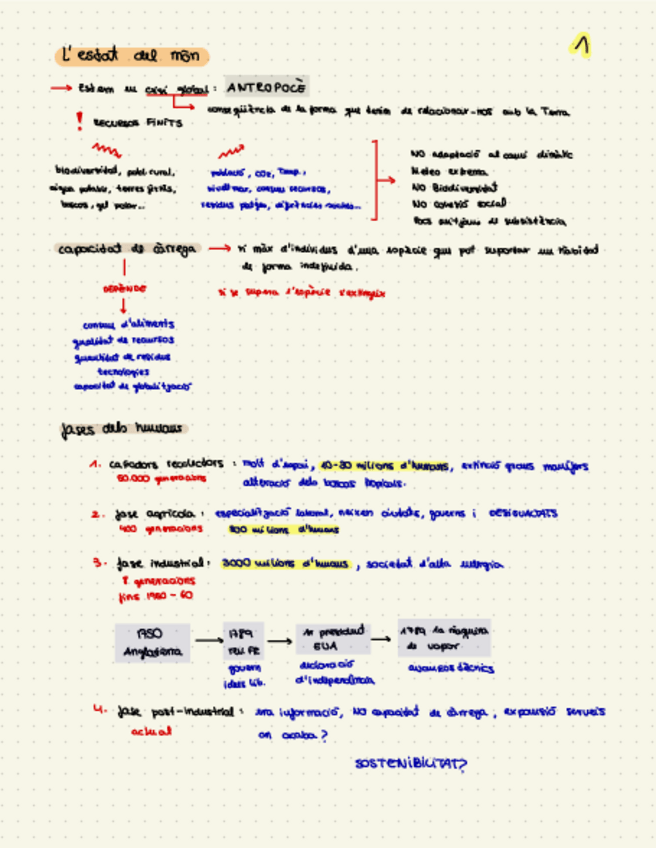 1
L'estat del món
→ Estem en crisi global: ANTROPOCÈ
conseqüència de la forma que tenim de relacionar-nos amb la Terra
! RECURSOS FINITS
biodiversitat, pobl. rural,
aigua potable, terres fèrtils,
boscos, gel polar...
població, CO2, Temp.,
nivell mar, consum recursos,
residus, diferències socials...
NO adaptació al canvi climàtic
Meteo extrema
NO Biodiversitat
NO cohesió social
Pocs mitjans de subsistència
capacitat de càrrega → nº màx d'individus d'una espècie que pot suportar un hàbitat
de forma indefinida.
DEPÈN DE
si se supera l'espècie s'extingeix
consum d'aliments
qualitat de recursos
quantitat de residus
tecnologies
capacitat de globalització
fases dels humans
1. caçadors recolectors: molt d'espai, 10-30 milions d'humans, extinció grans mamífers
50.000 generacions
alteració dels boscos tropicals.
2. fase agrícola: especialització laboral, neixen ciutats, governs i DESIGUALTATS
400 generacions
800 milions d'humans
3. fase industrial: 3000 milions d'humans, societat d'alta energia
8 generacions
fins 1950 - 60
1750
Anglaterra
→
1789
rev. FR
govern
idees lib.
→
1r president
EUA
declaració
d'independència
→
1789 la màquina
de vapor
avanços tècnics
4. fase post-industrial: era informació, NO capacitat de càrrega, expansió serveis
actual
on acaba?
SOSTENIBILITAT?